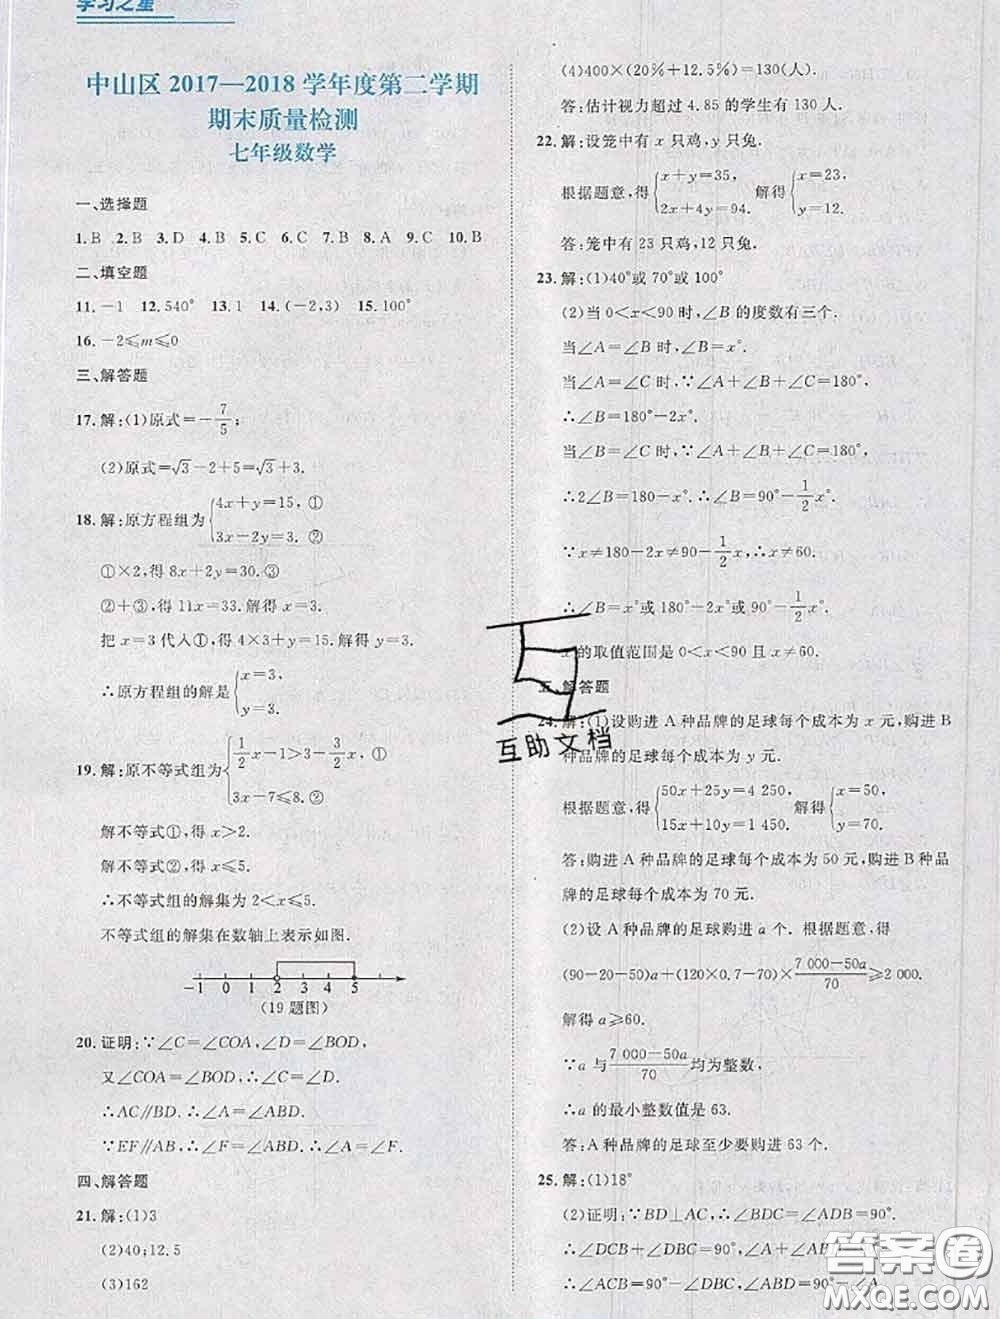 学习之星
中山区 2017—2018 学年度第二学期
期末质量检测
七年级数学
一、选择题
1.B 2.B 3.D 4.B 5.C 6.C 7.B 8.A 9.C 10.B
二、填空题
11.-1 12.540° 13.1 14.(-2,3) 15.100°
16.-2⩽m⩽0
三、解答题
17.解:(1)原式=-7/5;
(2)原式=√3-2+5=√3+3.
18.解:原方程组为{4x+y=15,①
3x-2y=3.②
①×2,得 8x+2y=30.③
②+③,得 11x=33.解得 x=3.
把 x=3 代入①,得 4×3+y=15.解得 y=3.
∴原方程组的解是{x=3,
y=3.
19.解:原不等式组为{1/2x-1>3-3/2x,①
3x-7⩽8.②
解不等式①,得 x>2.
解不等式②,得 x⩽5.
∴不等式组的解集为 2<x⩽5.
不等式组的解集在数轴上表示如图.
-1 0 1 2 3 4 5
(19 题图)
20.证明:∵∠C=∠COA,∠D=∠BOD,
又∠COA=∠BOD,∴∠C=∠D.
∴AC∥BD.∴∠A=∠ABD.
∵EF∥AB,∴∠F=∠ABD.∴∠A=∠F.
四、解答题
21.解:(1)3
(2)40;12.5
(3)162
(4)400×(20%+12.5%)=130(人).
答:估计视力超过 4.85 的学生有 130 人.
22.解:设笼中有 x 只鸡,y 只兔.
根据题意,得{x+y=35,
2x+4y=94. 解得{x=23,
y=12.
答:笼中有 23 只鸡,12 只兔.
23.解:(1)40°或 70°或 100°
(2)当 0<x<90 时,∠B 的度数有三个.
当∠A=∠B 时,∠B=x°.
当∠A=∠C 时,∵∠A+∠B+∠C=180°,
∴∠B=180°-2x°.
当∠B=∠C 时,∵∠A+∠B+∠C=180°,
∴2∠B=180°-x°.∴∠B=90°-1/2x°.
∵x≠180-2x≠90-1/2x,∴x≠60.
∴∠B=x°或 180°-2x°或 90°-1/2x°.
x 的取值范围是 0<x<90 且 x≠60.
五、解答题
24.解:(1)设购进 A 种品牌的足球每个成本为 x 元,购进 B
种品牌的足球每个成本为 y 元.
根据题意,得{50x+25y=4 250,
15x+10y=1 450. 解得{x=50,
y=70.
答:购进 A 种品牌的足球每个成本为 50 元,购进 B 种品
牌的足球每个成本为 70 元.
(2)设 A 种品牌的足球购进 a 个.根据题意,得
(90-20-50)a+(120×0.7-70)×(7 000-50a)/70⩾2 000.
解得 a⩾60.
∵a 与(7 000-50a)/70均为整数,
∴a 的最小整数值是 63.
答:A 种品牌的足球至少要购进 63 个.
25.解:(1)18°
(2)证明:∵BD⊥AC,∴∠ADB=∠CDB=90°.
∴∠DCB+∠DBC=90°,∠A+∠ABD=90°.
∴∠ACB=90°-∠DBC,∠ABD=90°-∠A.
互助文档
答案圈
MXQE.COM